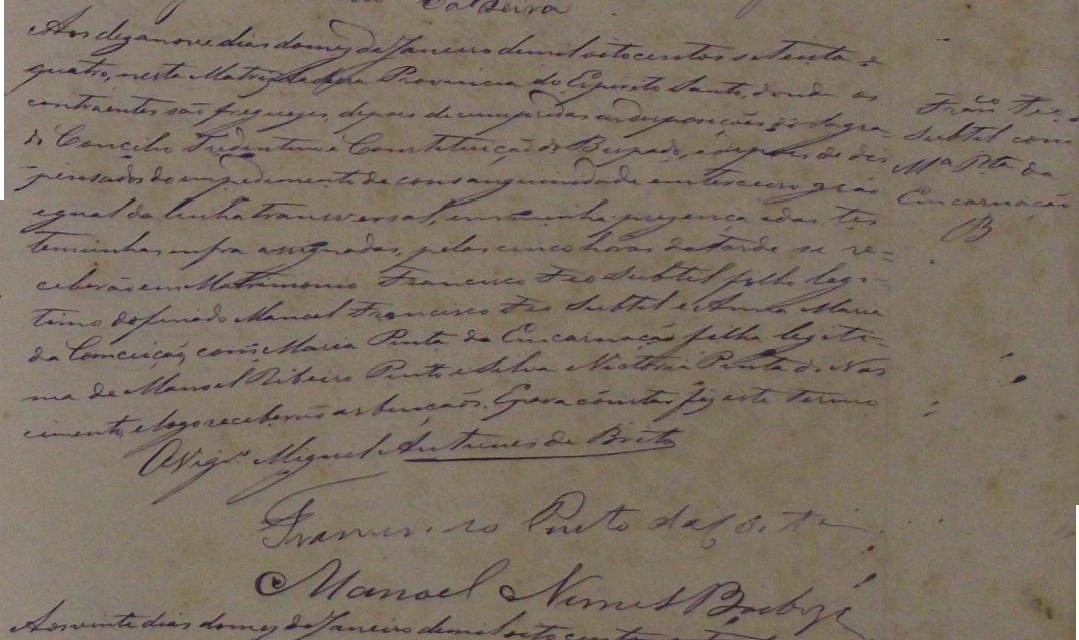 da Serra
Aos dezanove dias do mez de Janeiro de mil oitocentos setenta e
quatro, nesta Matriz da Provincia do Espirito Santo, donde os
contraentes são freguezes, depois de cumpridas as disposições do Sagra-
do Concilio Tridentino e Constituição do Bispado, e depois de dis
pensados do empedimento de consanguinidade em terceiro gráo
egual da linha transversal, em minha presença e das tes
temunhas enfra assignadas, pelas cinco horas da tarde se re-
ceberão em Matrimonio Francisco Feo Subtil filho legi-
timo do finado Manoel Francisco Feo Subtil e Anna Maria
da Conceição, com Maria Pinta da Encarnação filha legiti-
ma de Manoel Ribeiro Pinto e Silva Victoria Pinta do Nas
cimento, e logo receberão as bençaõs. E para constar fiz este termo
O Vigr.º Miguel Antunes de Brito
Francisco Pinto da
Manoel Nunes Barboza
Aos vinte dias do mez de Janeiro de mil oito centos
Fran.co Feo
Subtil com
M.ª Pta da
Encarnação
B